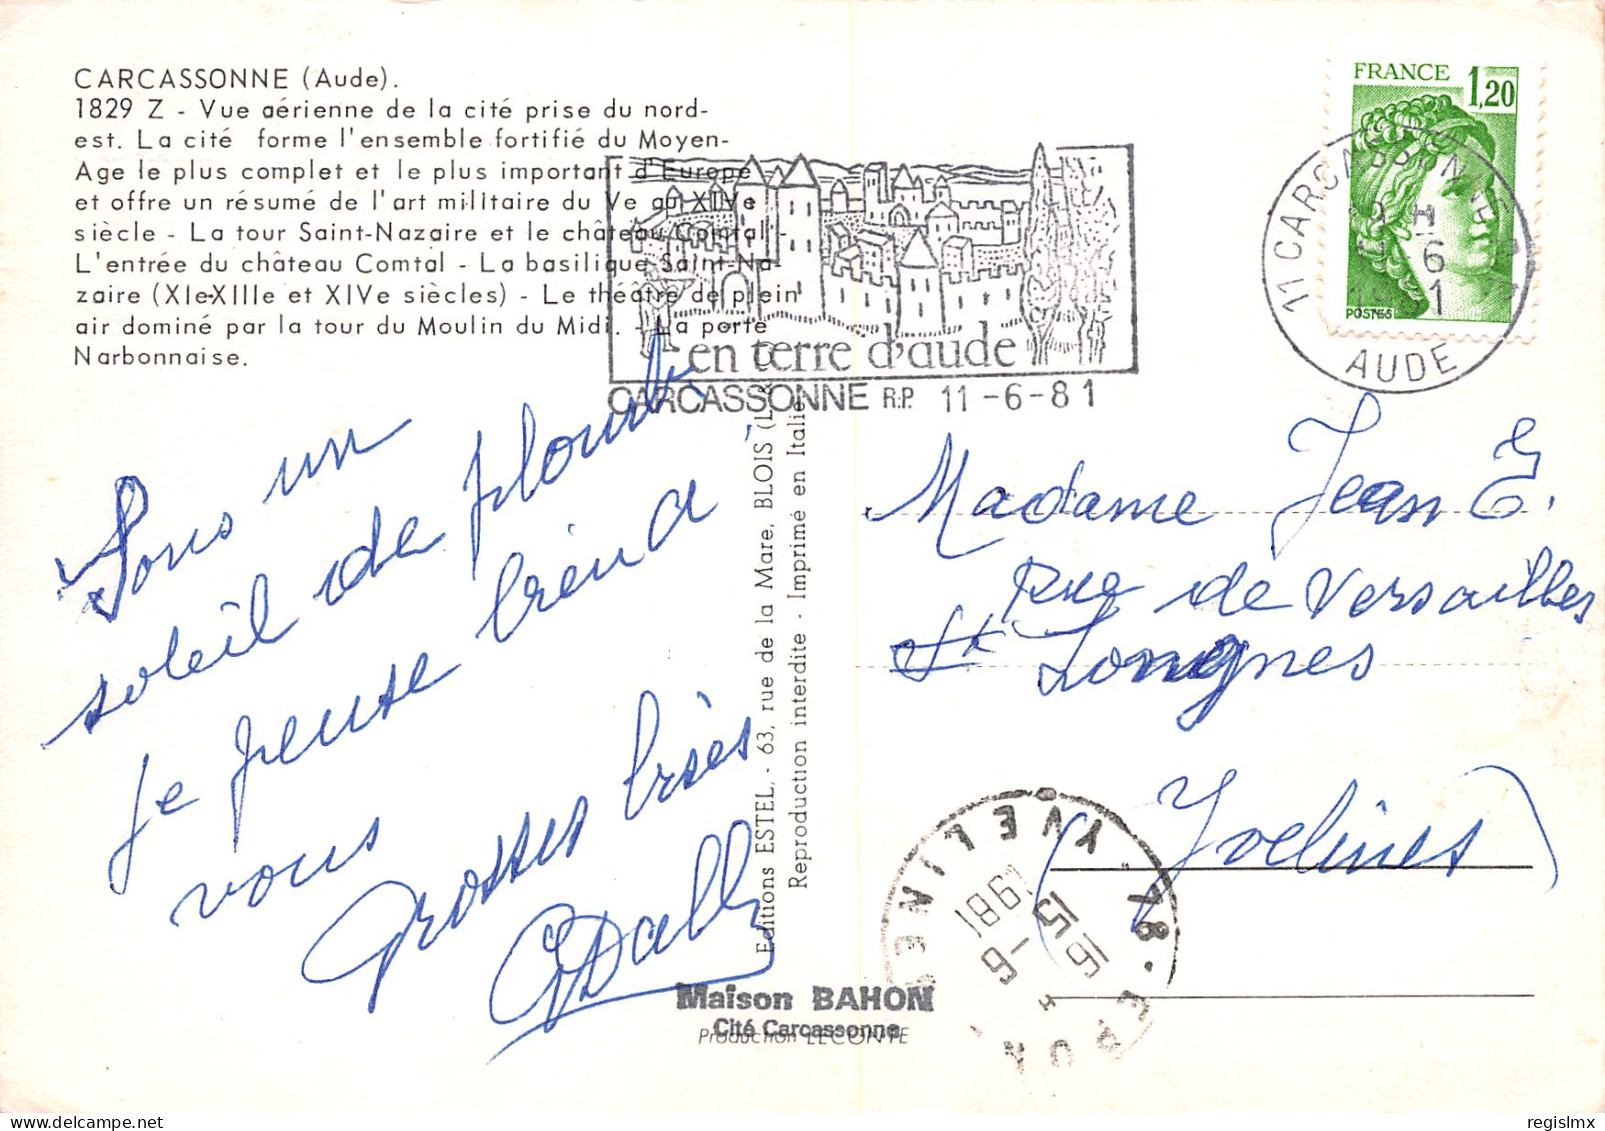 CARCASSONNE (Aude).
1829 Z - Vue aérienne de la cité prise du nord-
est. La cité forme l'ensemble fortifié du Moyen-
Age le plus complet et le plus important d'Europe
et offre un résumé de l'art militaire du Ve au XIVe
siècle - La tour Saint-Nazaire et le château Comtal -
L'entrée du château Comtal - La basilique Saint-Na-
zaire (XIe-XIIIe et XIVe siècles) - Le théâtre de plein
air dominé par la tour du Moulin du Midi. - La porte
Narbonnaise.
en terre d'aude
CARCASSONNE R.P. 11-6-81
FRANCE 1,20
POSTES
11 CARCASSONNE
12 H
11 6
1981
AUDE
Sous un
soleil de plomb,
je pense bien à
vous
Grosses bises
Editions ESTEL, - 63, rue de la Mare, BLOIS
Reproduction interdite - Imprimé en Italie
Madame Jean E.
Rue de Versailles
St Longnes
(Yvelines)
78 - EPONE YVELINES
16 H
15-6
1981
Maison BAHON
Cité Carcassonne
Production LECONTE
regislmx